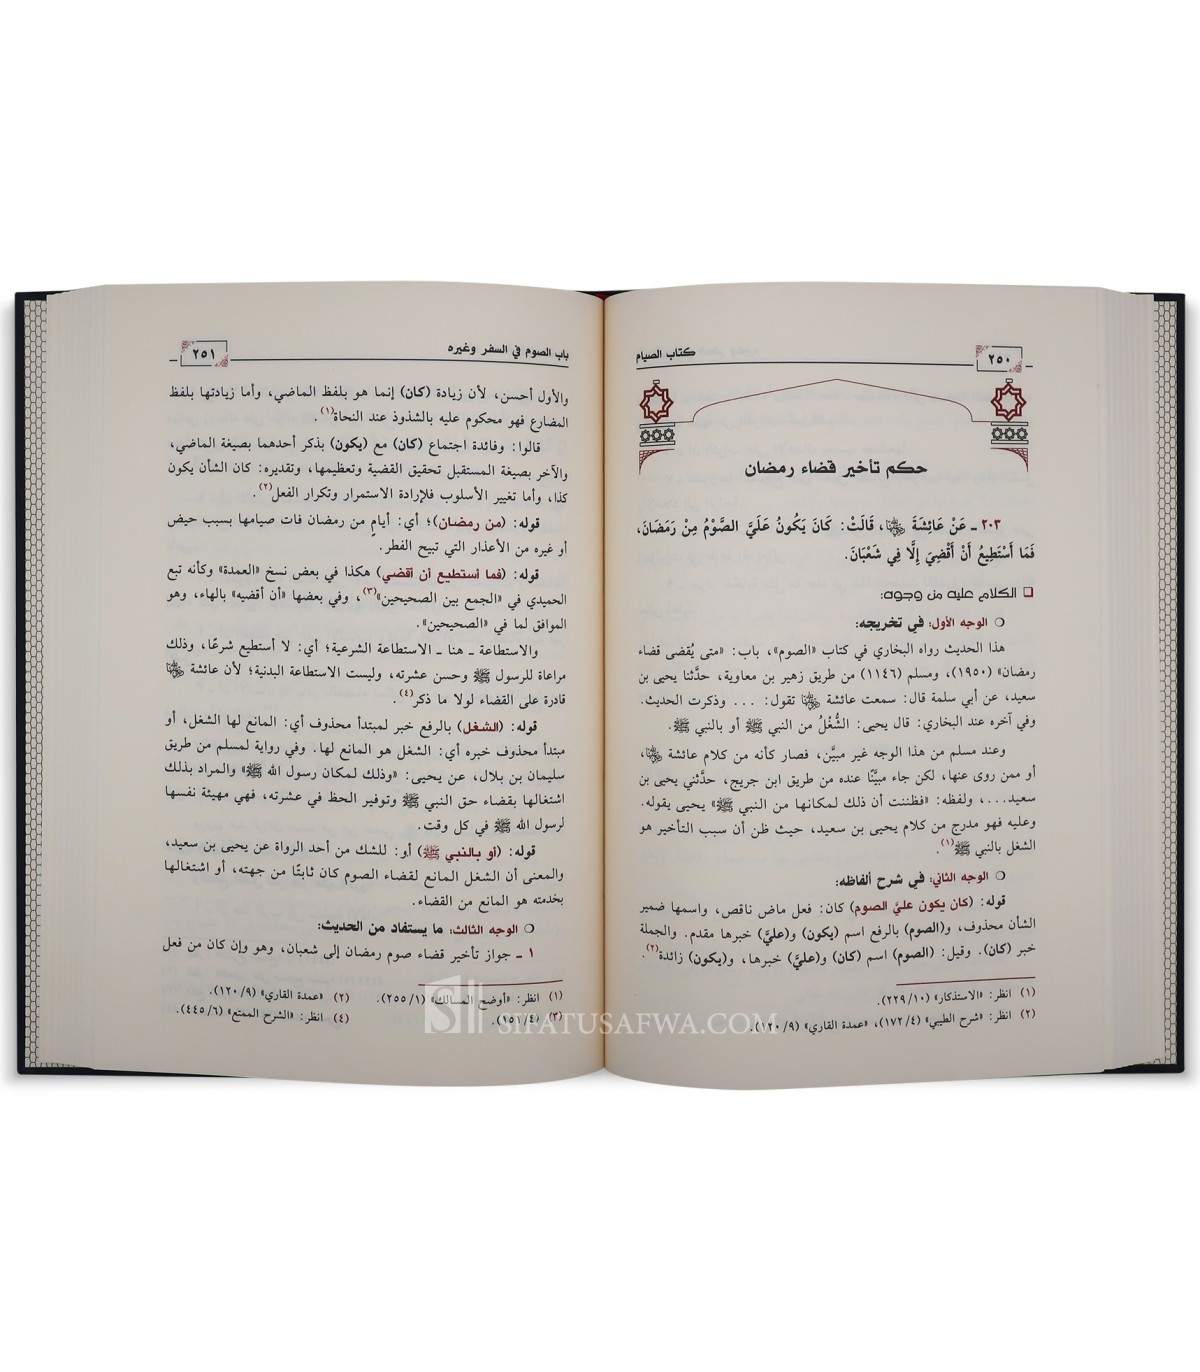 كتاب الصيام
٢٥٠
حكم تأخير قضاء رمضان
٢٠٣ ـ عَنْ عَائِشَةَ ﵂، قَالَتْ: كَانَ يَكُونُ عَلَيَّ الصَّوْمُ مِنْ رَمَضَانَ،
فَمَا أَسْتَطِيعُ أَنْ أَقْضِيَ إِلَّا فِي شَعْبَانَ.
الكلام عليه من وجوه:
الوجه الأول: في تخريجه:
هذا الحديث رواه البخاري في كتاب «الصوم»، باب: «متى يُقضى قضاء
رمضان» (١٩٥٠)، ومسلم (١١٤٦) من طريق زهير بن معاوية، حدَّثنا يحيى بن
سعيد، عن أبي سلمة قال: سمعت عائشة ﵂ تقول: ... وذكرت الحديث.
وفي آخره عند البخاري: قال يحيى: الشُّغْلُ من النبي ﷺ أو بالنبي ﷺ.
وعند مسلم من هذا الوجه غير مبيَّن، فصار كأنه من كلام عائشة ﵂،
أو ممن روى عنها، لكن جاء مبيَّنًا عنده من طريق ابن جريج، حدَّثني يحيى بن
سعيد...، ولفظه: «فظننت أن ذلك لمكانها من النبي ﷺ» يحيى يقوله.
وعليه فهو مدرج من كلام يحيى بن سعيد، حيث ظن أن سبب التأخير هو
الشغل بالنبي ﷺ(١).
الوجه الثاني: في شرح ألفاظه:
قوله: (كان يكون عليَّ الصوم) كان: فعل ماض ناقص، واسمها ضمير
الشأن محذوف، و(الصوم) بالرفع اسم (يكون) و(عليَّ) خبرها مقدم. والجملة
خبر (كان). وقيل: (الصوم) اسم (كان) و(عليَّ) خبرها، و(يكون) زائدة(٢).
(١) انظر: «الاستذكار» (٢٢٩/١٠).
(٢) انظر: «شرح الطيبي» (١٧٢/٤)، «عمدة القاري» (١٢٠/٩).
باب الصوم في السفر وغيره
٢٥١
والأول أحسن، لأن زيادة (كان) إنما هو بلفظ الماضي، وأما زيادتها بلفظ
المضارع فهو محكوم عليه بالشذوذ عند النحاة(١).
قالوا: وفائدة اجتماع (كان) مع (يكون) بذكر أحدهما بصيغة الماضي،
والآخر بصيغة المستقبل تحقيق القضية وتعظيمها، وتقديره: كان الشأن يكون
كذا، وأما تغيير الأسلوب فلإرادة الاستمرار وتكرار الفعل(٢).
قوله: (من رمضان)؛ أي: أيامٍ من رمضان فات صيامها بسبب حيض
أو غيره من الأعذار التي تبيح الفطر.
قوله: (فما أستطيع أن أقضي) هكذا في بعض نسخ «العمدة» وكأنه تبع
الحميدي في «الجمع بين الصحيحين»(٣)، وفي بعضها «أن أقضيه» بالهاء، وهو
الموافق لما في «الصحيحين».
والاستطاعة ـ هنا ـ الاستطاعة الشرعية؛ أي: لا أستطيع شرعًا، وذلك
مراعاة للرسول ﷺ وحسن عشرته، وليست الاستطاعة البدنية؛ لأن عائشة ﵂
قادرة على القضاء لولا ما ذكر(٤).
قوله: (الشغل) بالرفع خبر لمبتدأ محذوف أي: المانع لها الشغل، أو
مبتدأ محذوف خبره أي: الشغل هو المانع لها. وفي رواية لمسلم من طريق
سليمان بن بلال، عن يحيى: «وذلك لمكان رسول الله ﷺ» والمراد بذلك
اشتغالها بقضاء حق النبي ﷺ وتوفير الحظ في عشرته، فهي مهيئة نفسها
لرسول الله ﷺ في كل وقت.
قوله: (أو بالنبي ﷺ) أو: للشك من أحد الرواة عن يحيى بن سعيد،
والمعنى أن الشغل المانع لقضاء الصوم كان ثابتًا من جهته، أو اشتغالها
بخدمته هو المانع من القضاء.
الوجه الثالث: ما يستفاد من الحديث:
١ ـ جواز تأخير قضاء صوم رمضان إلى شعبان، وهو وإن كان من فعل
(١) انظر: «أوضح المسالك» (٢٥٥/١). (٢) «عمدة القاري» (١٢٠/٩).
(٣) (١٥٦/٤). (٤) انظر: «الشرح الممتع» (٤٤٥/٦).
SIFATUSAFWA.COM